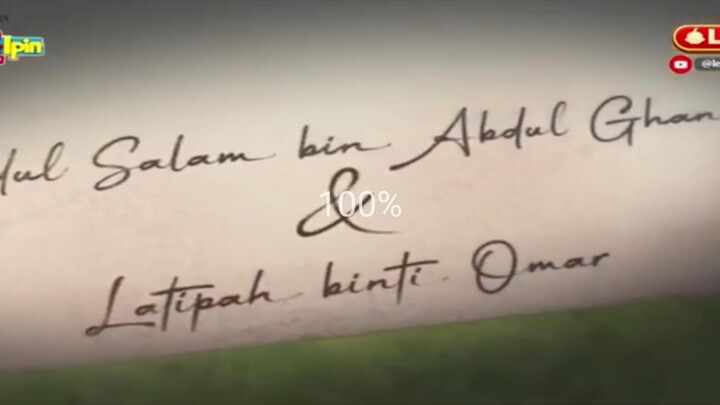 Ipin
dul Salam bin Abdul Ghan
&
100%
Latipah binti Omar